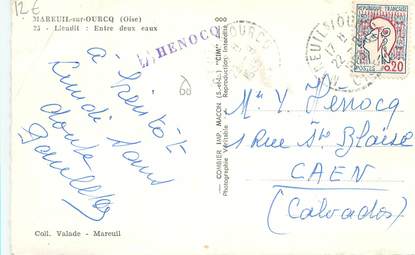 12€
MAREUIL-sur-OURCQ (Oise)
23 - Lieudit : Entre deux eaux
HENOCQ
à bientôt
lundi sans
doute
OURCQ
17
22
RÉPUBLIQUE FRANÇAISE
POSTES
0,20
COMBIER IMP. MACON (S.-et-L.) "CIM"
Photographie Véritable - Reproduction Interdite
Mr Y Henocq
1 Rue St Blaise
CAEN
(Calvados)
Coll. Valade - Mareuil